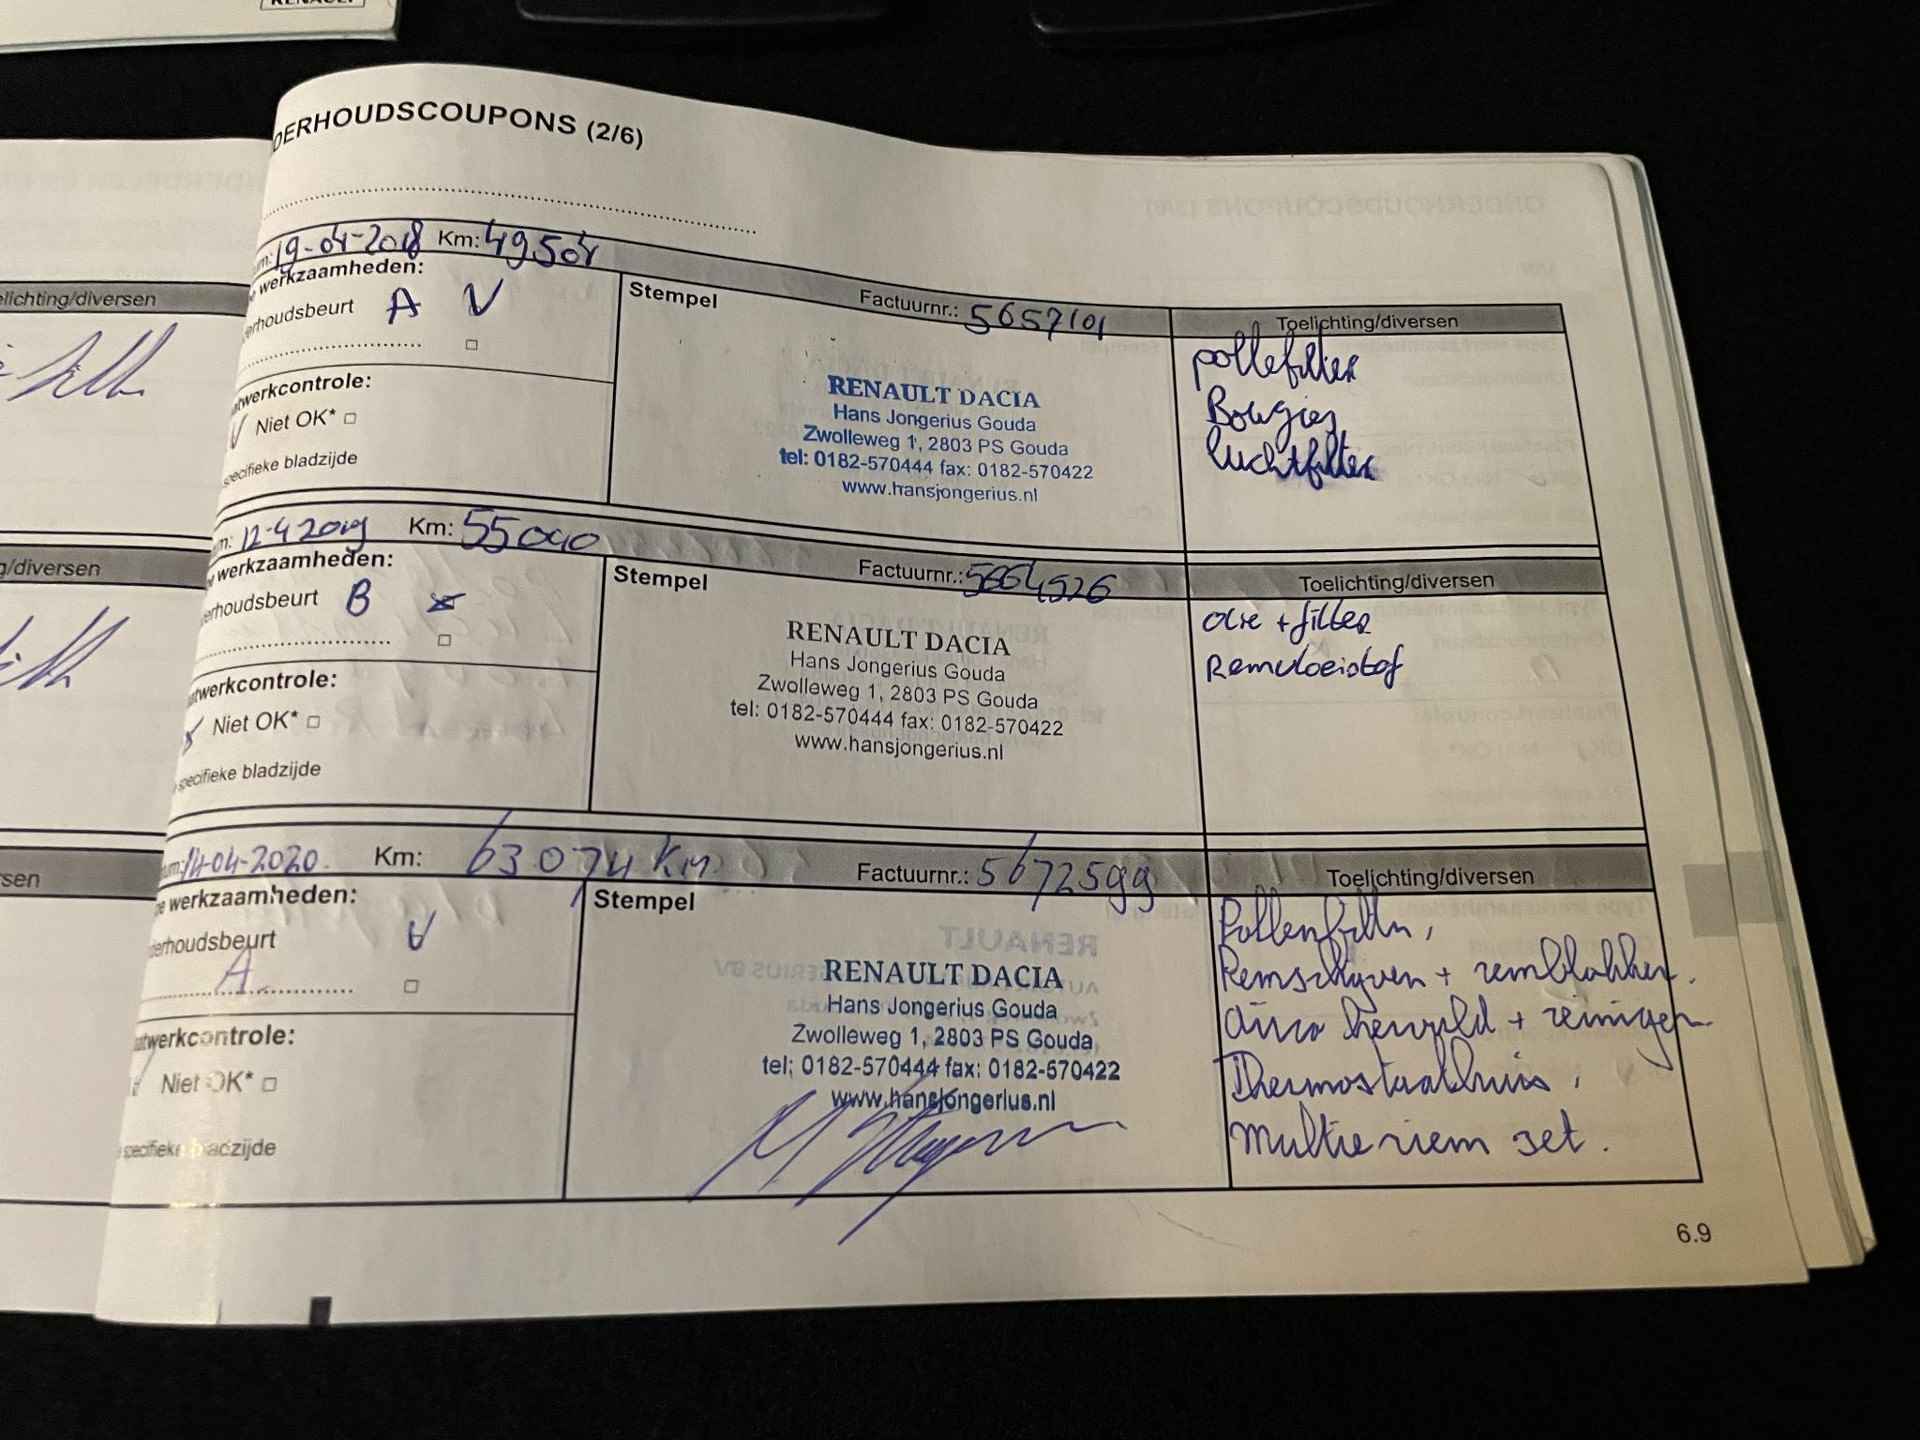 RENAULT
DERHOUDSCOUPONS (2/6)
um: 19-04-2018 Km: 49504
werkzaamheden:
erhoudsbeurt A V
Stempel
Factuurnr.: 5657101
Toelichting/diversen
pollefilter
Bougies
luchtfilter
RENAULT DACIA
Hans Jongerius Gouda
Zwolleweg 1, 2803 PS Gouda
tel: 0182-570444 fax: 0182-570422
www.hansjongerius.nl
atwerkcontrole:
V Niet OK*
specifieke bladzijde
elichting/diversen
um: 12-4 2019 Km: 55040
werkzaamheden:
erhoudsbeurt B
Stempel
Factuurnr.: 5664526
Toelichting/diversen
olie + filter
Remvloeistof
RENAULT DACIA
Hans Jongerius Gouda
Zwolleweg 1, 2803 PS Gouda
tel: 0182-570444 fax: 0182-570422
www.hansjongerius.nl
atwerkcontrole:
Niet OK*
specifieke bladzijde
g/diversen
um: 14-04-2020. Km: 63074 Km
werkzaamheden:
derhoudsbeurt V
A
Stempel
Factuurnr.: 5672599
Toelichting/diversen
Pollenfilter,
Remschyven + remblokken.
airco + reinigen
Thermostaathuis,
multie riem set.
RENAULT DACIA
Hans Jongerius Gouda
Zwolleweg 1, 2803 PS Gouda
tel: 0182-570444 fax: 0182-570422
www.hansjongerius.nl
atwerkcontrole:
Niet OK*
specifieke bladzijde
rsen
6.9